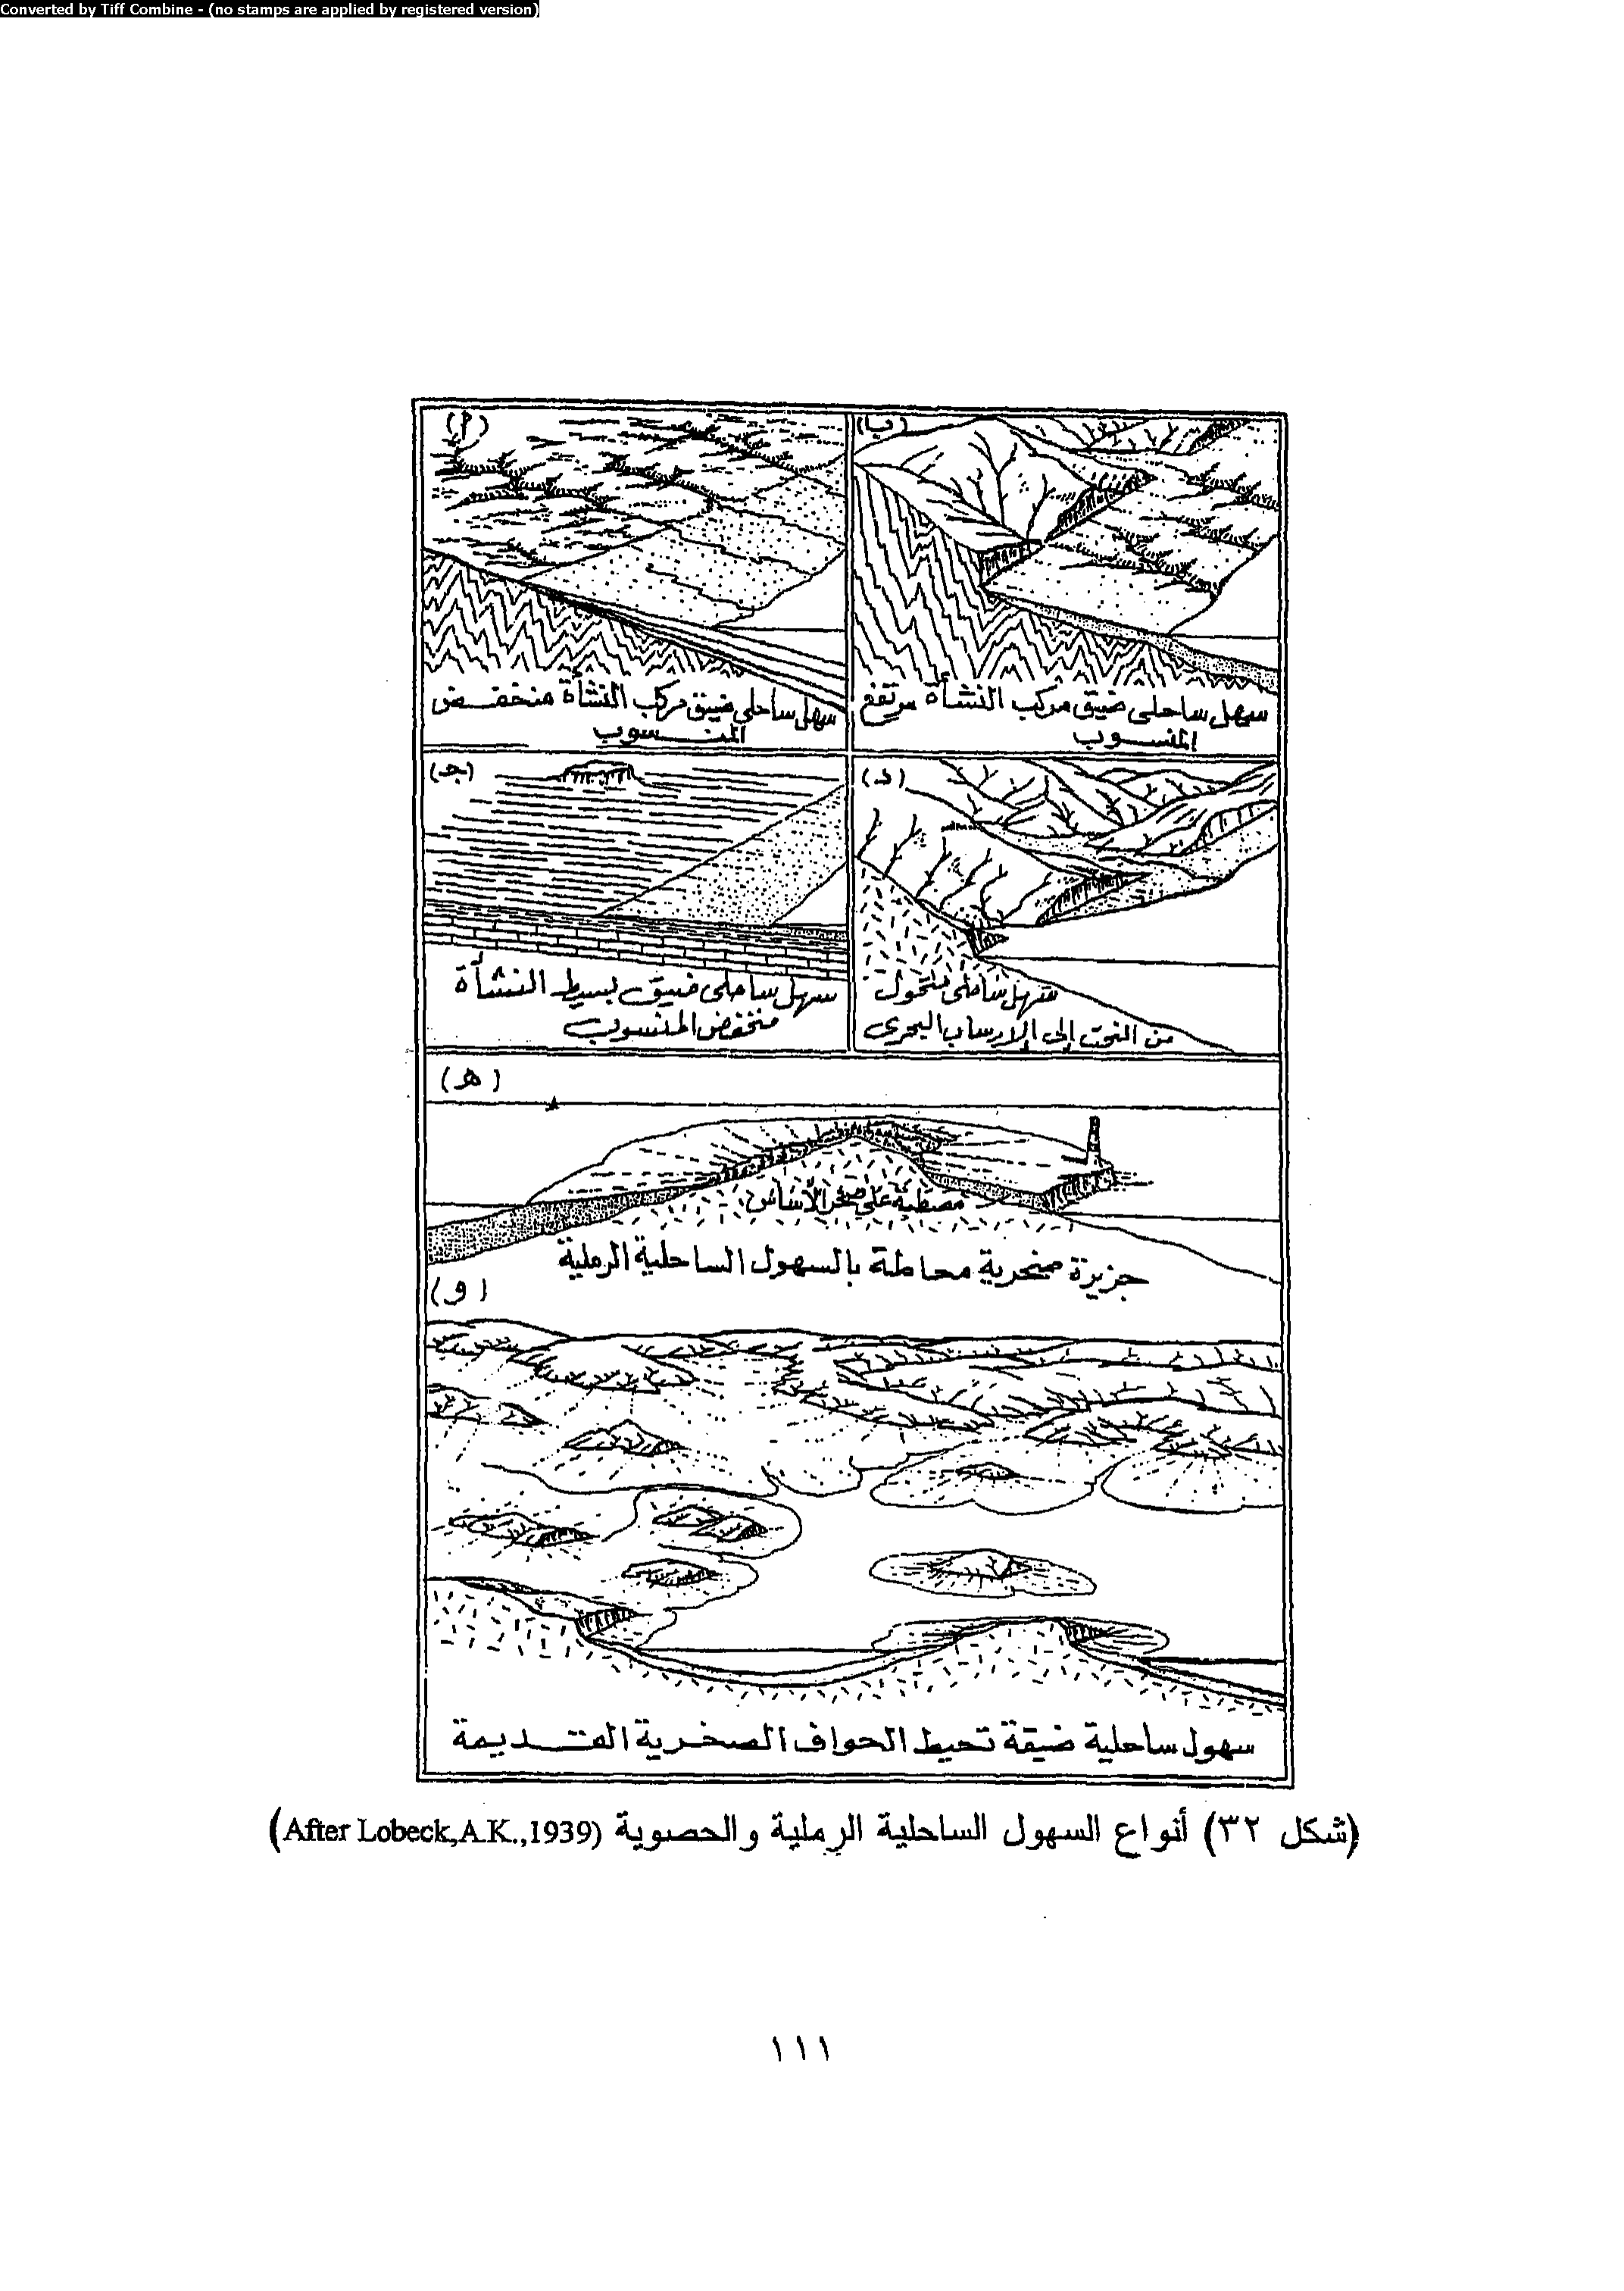 Converted by Tiff Combine - (no stamps are applied by registered version)
(أ)
سهل ساحلى ضيق مركب النشأة منخفض
المنسوب
(ب)
سهل ساحلى ضيق مركب النشأة مرتفع
المنسوب
(جـ)
سهل ساحلى ضيق بسيط النشأة
منخفض المنسوب
(د)
سهل ساحلى متحول
من النحت إلى الإرساب البحرى
(هـ)
مصطبة على صخر الأساس
جزيرة صخرية محاطة بالسهول الساحلية الرملية
(و)
سهول ساحلية ضيقة تحيط الحواف الصخرية القديمة
(شكل ٣٢) أنواع السهول الساحلية الرملية والحصوية (After Lobeck,A.K.,1939)
١١١